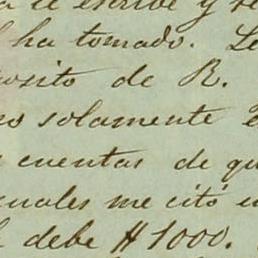 le escribe y se
ha tomado. Le
posito de R.
no solamente
cuentas de qu
cuales me citó
debe $1000.